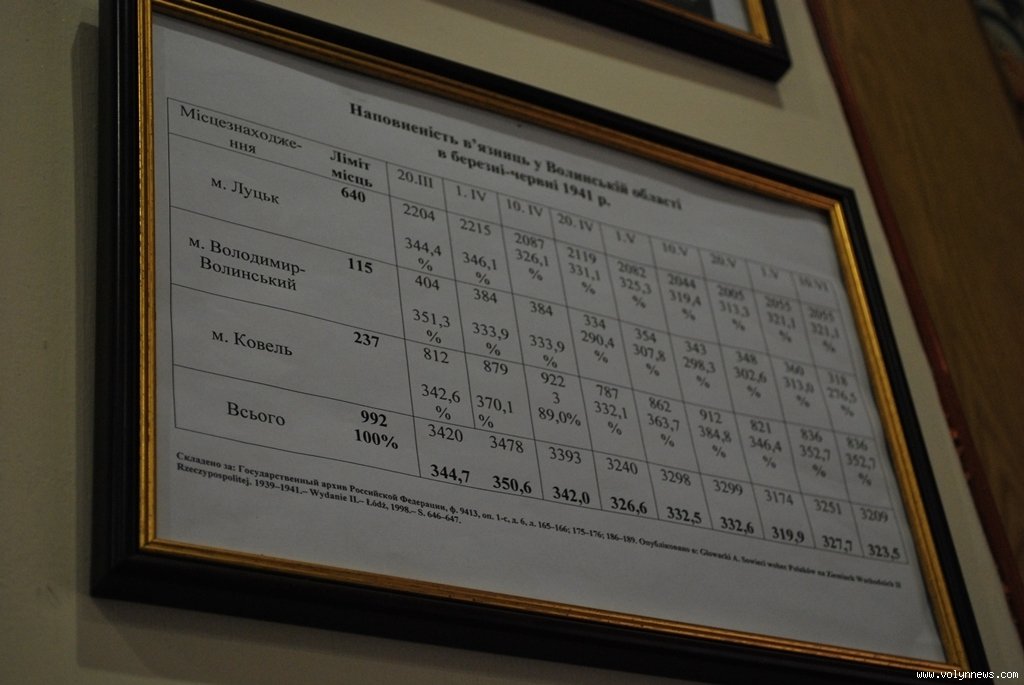 Наповненість в'язниць у Волинській області
в березні-червні 1941 р.
Місцезнаходже-
ння Ліміт
місць 20.III 1. IV 10. IV 20. IV 1.V 10.V 20.V 1.V 10.VI
м. Луцьк 640 2204 2215 2087 2119 2082 2044 2005 2055 2055
344,4 346,1 326,1 331,1 325,3 319,4 313,3 321,1 321,1
% % % % % % % % %
м. Володимир-
Волинський 115 404 384 384 334 354 343 348 360 318
351,3 333,9 333,9 290,4 307,8 298,3 302,6 313,0 276,5
% % % % % % % % %
м. Ковель 237 812 879 922 787 862 912 821 836 836
342,6 370,1 3 332,1 363,7 384,8 346,4 352,7 352,7
% % 89,0% % % % % % %
Всього 992 3420 3478 3393 3240 3298 3299 3174 3251 3209
100% 344,7 350,6 342,0 326,6 332,5 332,6 319,9 327,7 323,5
Складено за: Государственный архив Российской Федерации, ф. 9413, оп. 1-с, д. 6, л. 165–166; 175–176; 186–189. Опубліковано в: Głowacki A. Sowieci wobec Polaków na Ziemiach Wschodnich II
Rzeczypospolitej. 1939–1941.– Wydanie II.– Łódź, 1998.– S. 646–647.
www.volynnews.com